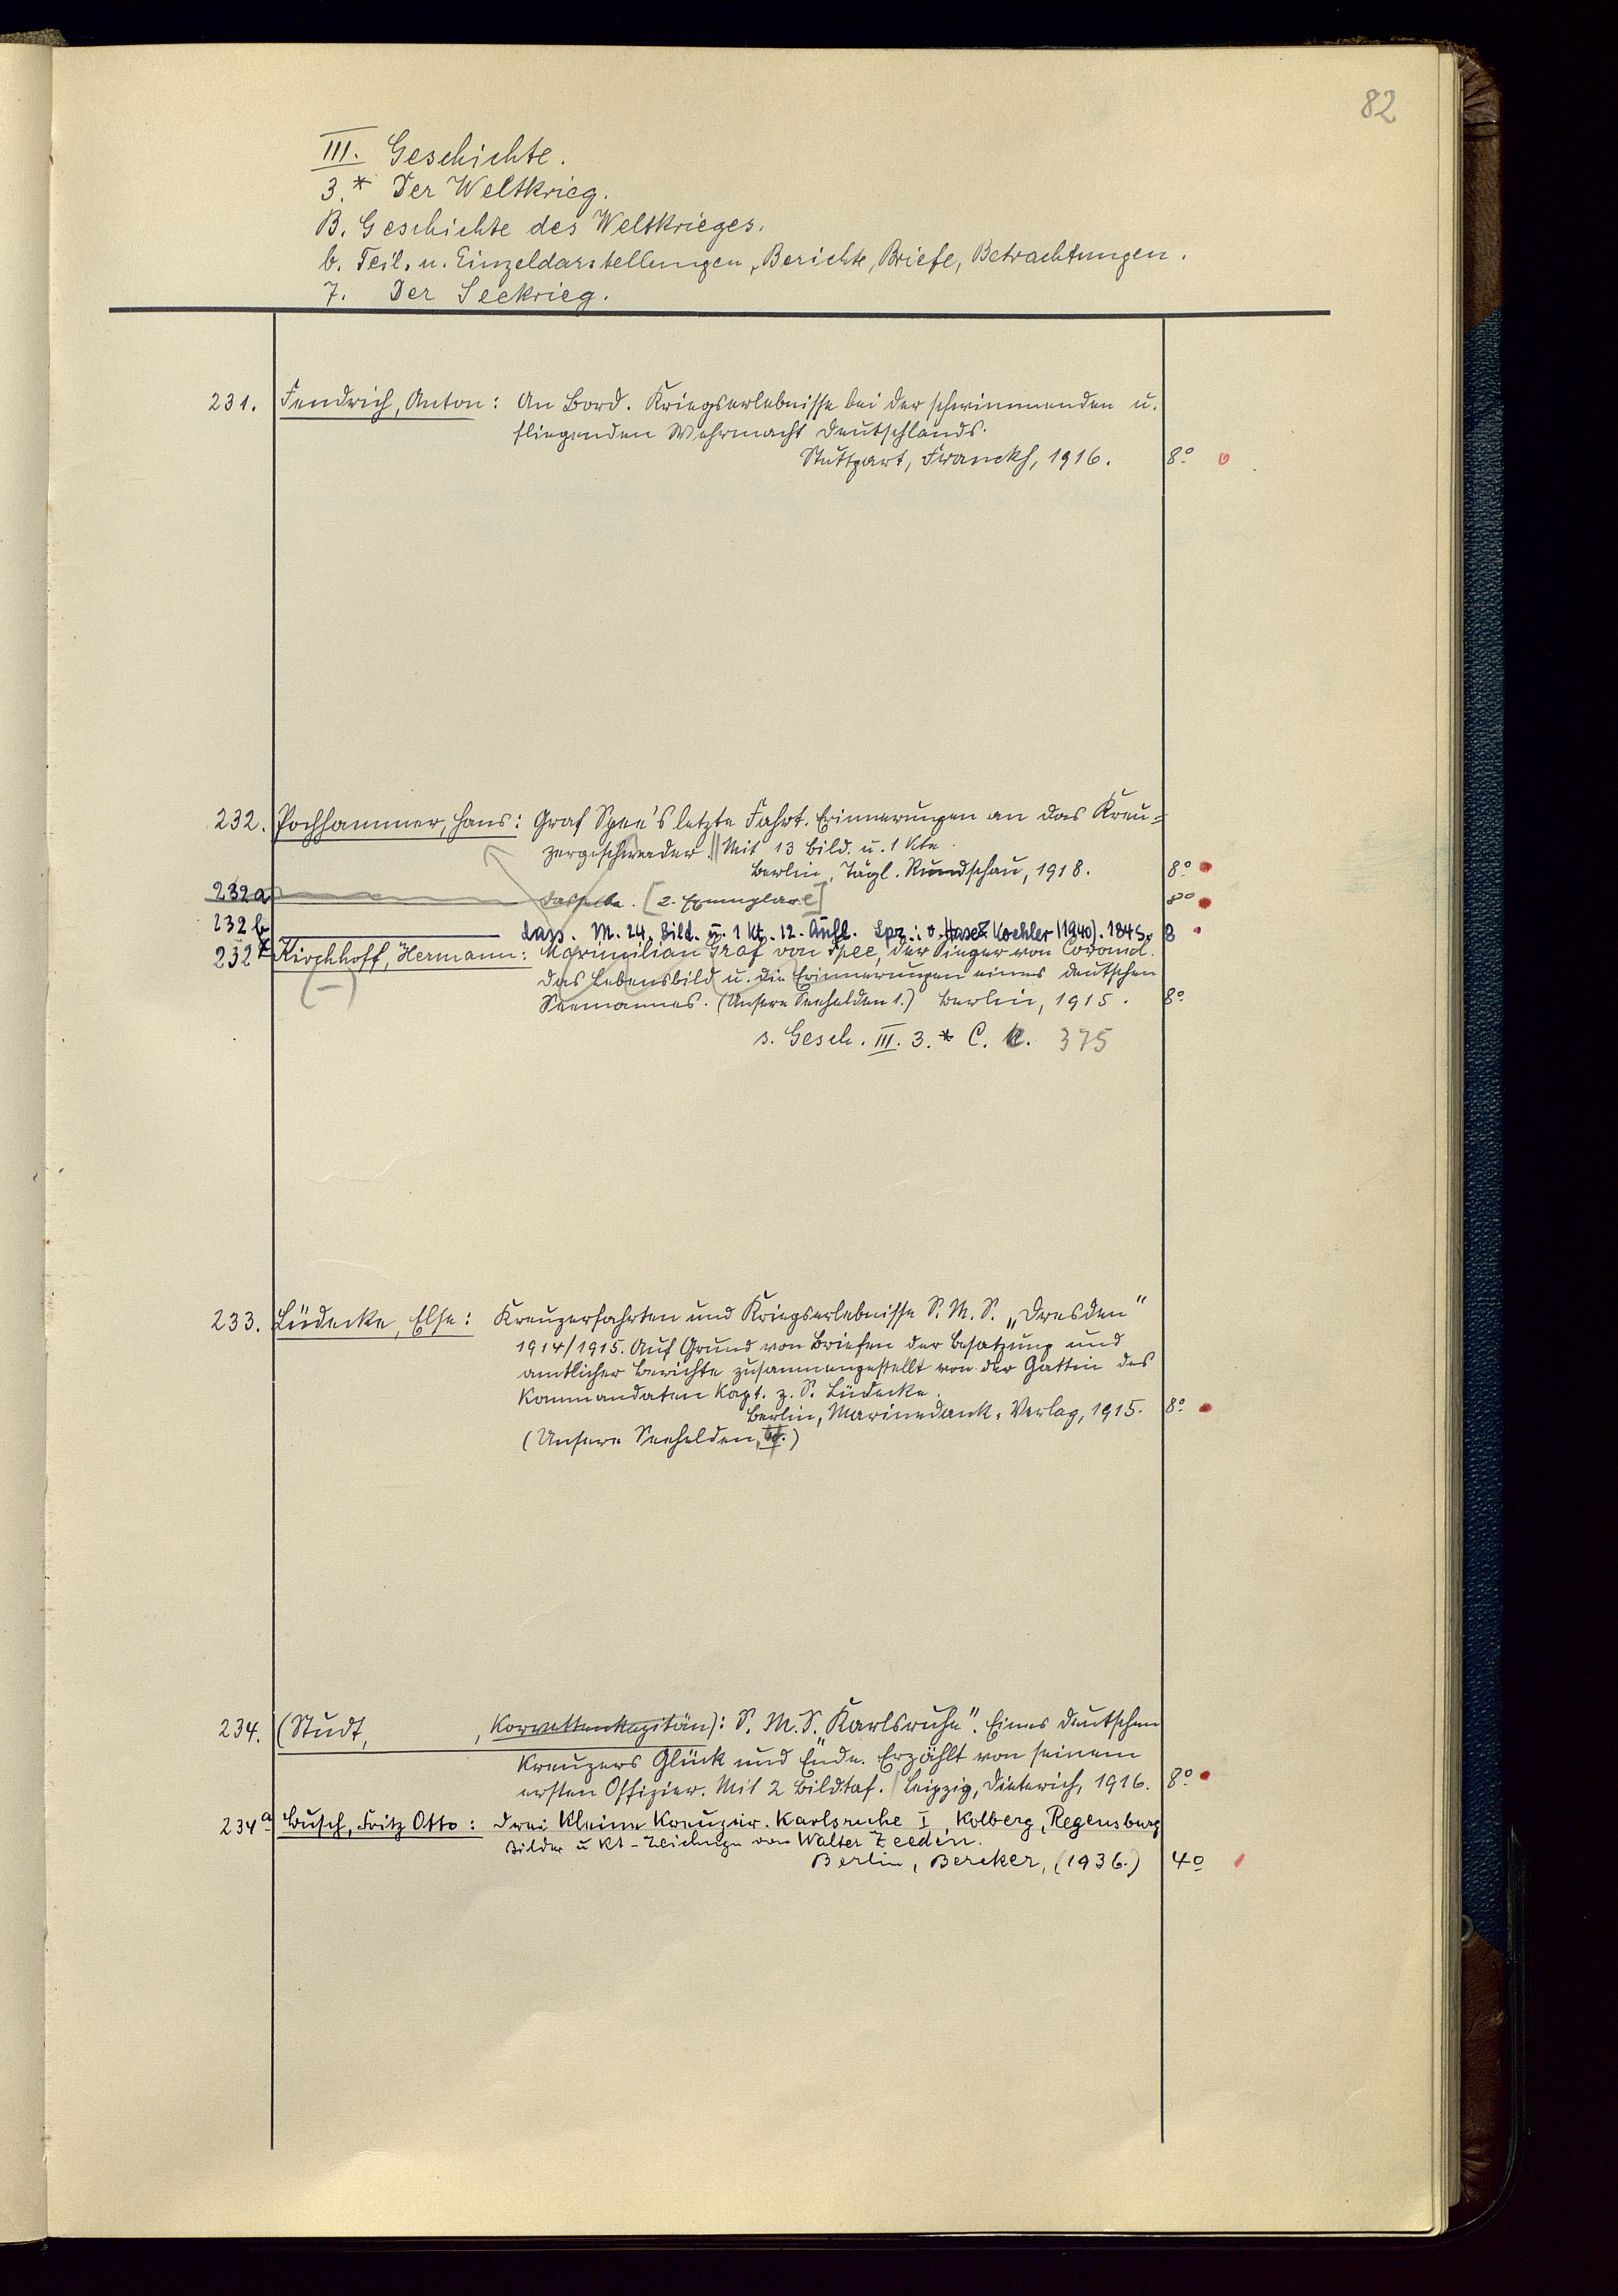 82
III. Geschichte.
3.* Der Weltkrieg.
B. Geschichte des Weltkrieges.
b. Teil- u. Einzeldarstellungen, Berichte, Briefe, Betrachtungen.
7. Der Seekrieg.
231. Fendrich, Anton: An Bord. Kriegserlebnisse bei der schwimmenden u.
fliegenden Wehrmacht Deutschlands.
Stuttgart, Franckh, 1916. 8°
232. Pochhammer, Hans: Graf Spee's letzte Fahrt. Erinnerungen an das Kreu-
zergeschwader. || Mit 13 Bild. u. 1 Kte.
Berlin, Tägl. Rundschau, 1918. 8°
232a dasselbe. [2. Exemplare] 8°
232b dass. M. 24. Bild. u. 1 Kt. 12. Aufl. Lpz.: v. Hase & Koehler (1940). 184 S. 8
232 Kirchhoff, Hermann: Maximilian Graf von Spee, der Sieger von Coronel.
Das Lebensbild u. die Erinnerungen eines deutschen
(–)
Seemannes. (Unsere Seehelden 1.) Berlin, 1915. 8°
s. Gesch. III. 3.* C. 375
233. Lüdecke, Else: Kreuzerfahrten und Kriegserlebnisse S. M. S. „Dresden"
1914/1915. Auf Grund von Briefen der Besatzung und
amtlicher Berichte zusammengestellt von der Gattin des
Kommandaten Kapt. z. S. Lüdecke.
Berlin, Marinedank-Verlag, 1915. 8°
(Unsere Seehelden, )
234. (Studt, , Korvettenkapitän): S. M. S. „Karlsruhe". Eines deutschen
Kreuzers Glück und Ende. Erzählt von seinem
ersten Offizier. Mit 2 Bildtaf. | Leipzig, Dieterich, 1916. 8°
234a Busch, Fritz Otto: Drei Kleine Kreuzer. Karlsruhe I, Kolberg, Regensburg
Bilder u Kt-Zeichngn von Walter Zeeden.
Berlin, Bercker, (1936.) 4°